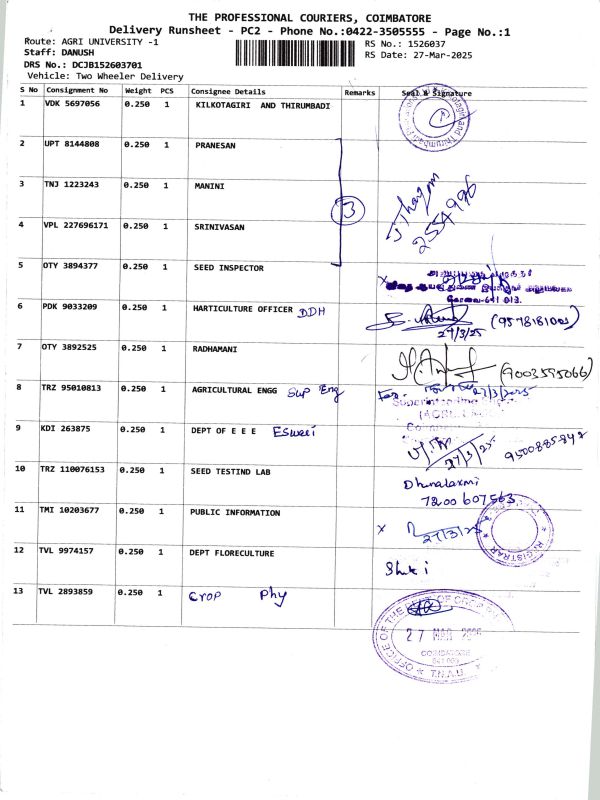 THE PROFESSIONAL COURIERS, COIMBATORE
Delivery Runsheet - PC2 - Phone No.:0422-3505555 - Page No.:1
Route: AGRI UNIVERSITY -1
RS No.: 1526037
Staff: DANUSH
RS Date: 27-Mar-2025
DRS No.: DCJB152603701
Vehicle: Two Wheeler Delivery
S No Consignment No Weight PCS Consignee Details Remarks Seal & Signature
1 VDK 5697056 0.250 1 KILKOTAGIRI AND THIRUMBADI
2 UPT 8144808 0.250 1 PRANESAN
3 TNJ 1223243 0.250 1 MANINI
3
4 VPL 227696171 0.250 1 SRINIVASAN
5 OTY 3894377 0.250 1 SEED INSPECTOR
6 PDK 9033209 0.250 1 HARTICULTURE OFFICER DDH
27/3/25
7 OTY 3892525 0.250 1 RADHAMANI
(9003595066)
8 TRZ 95010813 0.250 1 AGRICULTURAL ENGG Sup Eng
For
27/3/2025
9 KDI 263875 0.250 1 DEPT OF E E E
27/3/25
10 TRZ 110076153 0.250 1 SEED TESTIND LAB
Dhanalaxmi
7200 607563
11 TMI 10203677 0.250 1 PUBLIC INFORMATION
27/3/25
REGISTRAR
12 TVL 9974157 0.250 1 DEPT FLORECULTURE
13 TVL 2893859 0.250 1 crop Phy
27 MAR 2025
COIMBATORE
T.N.A.U